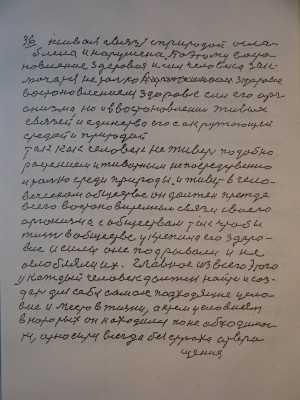 36 живая связь с природой осла-
блена и нарушена. Поэтому восто-
новление здоровья и сил человека зак-
лючается не только
востоновлением здоровье сил его орг-
анизма но и в востоновлении живых
связей и единство его с окружающей
средой и природой
так как человек не живет подобно
растением и животным непосредственно
и только среди природы, и живет в чело-
веческом обществе он должен прежде
всего востоновить связи своего
организма с обществам так чтобы
жить в обществе укрепила его здоро-
вие и силы а не подрывали и не
ослобляли их. Главное из всего этого
у каждый человек должен найти и соз-
дать для себя самое подходящие усло-
вие и место в жизни, а к тем условием
в которых он находится по не обходимос-
ти, относится всегда без страха отвра-
щения